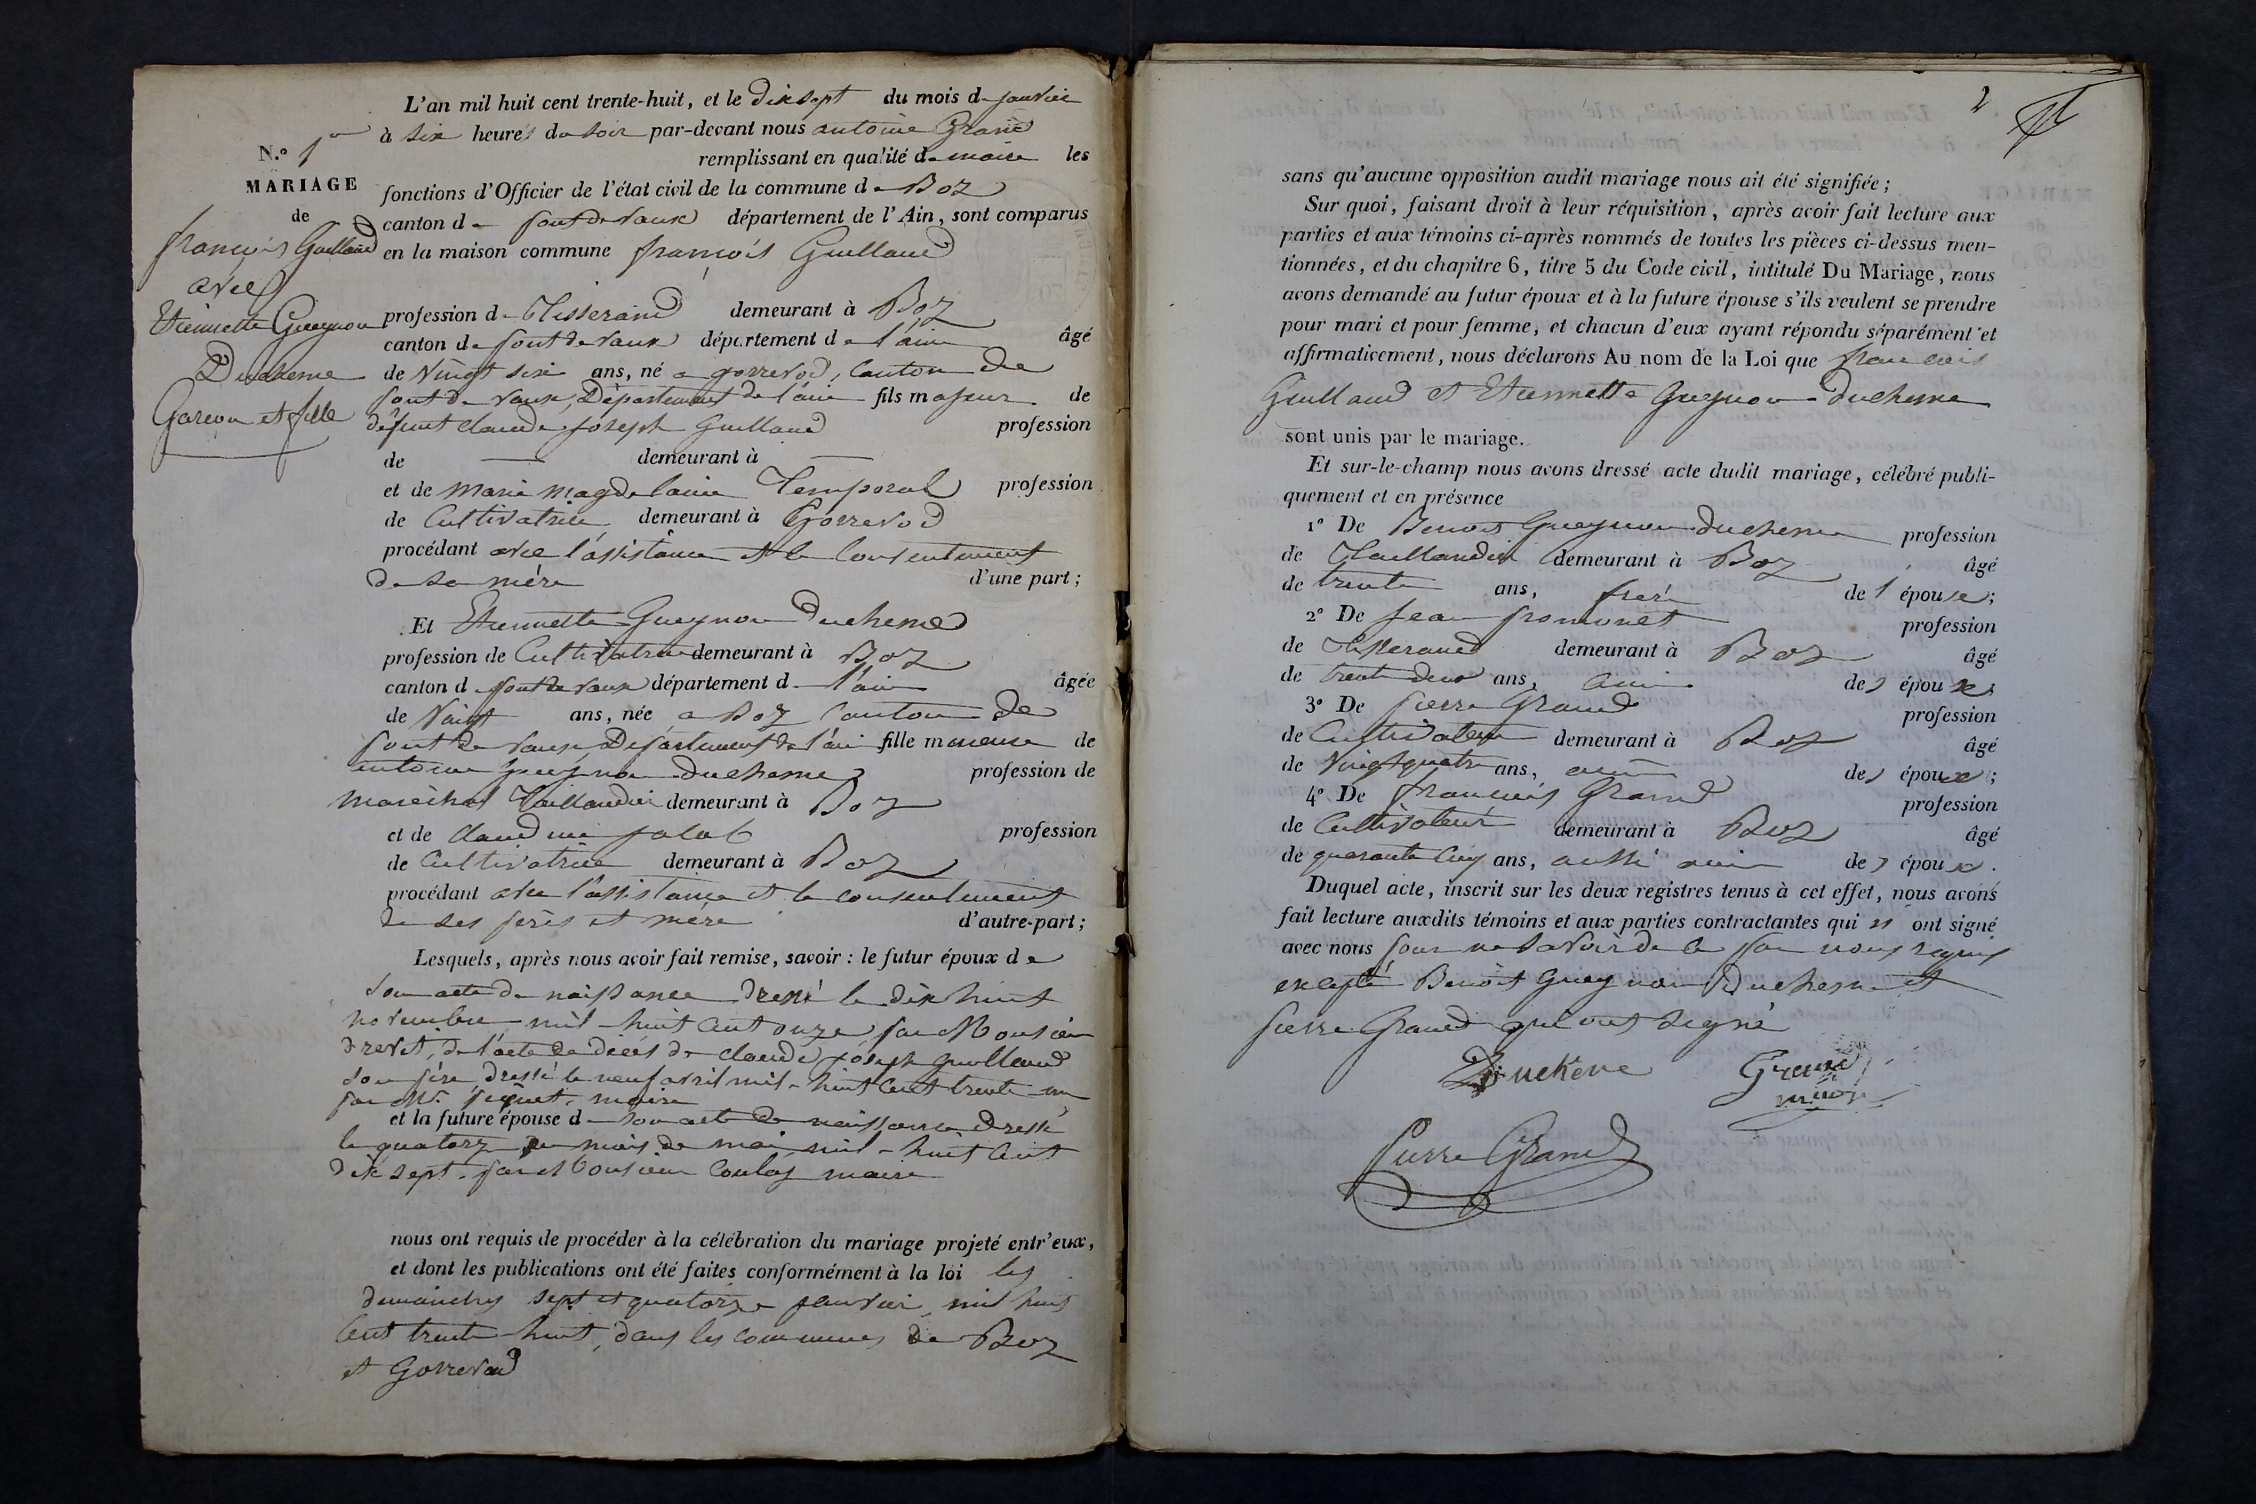 L'an mil huit cent trente-huit, et le dix sept du mois de janvier
à six heures du soir par-devant nous antoine Grand
remplissant en qualité de maire les
fonctions d'Officier de l'état civil de la commune de Boz
canton de pont de vaux département de l'Ain, sont comparus
en la maison commune françois Guillaud
N.o 1er
MARIAGE
de
françois Guillaud
avec
Etiennette Gueynon
Duchesne
Garcon et fille
profession de Tisserand demeurant à Boz
canton de pont de vaux département de l'ain âgé
de vingt six ans, né a gorrevod, canton de
pont de vaux, Département de l'ain fils majeur de
défunt claude joseph Guillaud profession
de — demeurant à —
et de marie magdelaine Temporal profession
de Cultivatrice demeurant à Gorrevod
procédant avec l'assistance et le consentement
de sa mére d'une part;
Et Etiennette Gueynon duchesne
profession de Cultivatrice demeurant à Boz
canton de pont de vaux département de l'ain âgée
de vingt ans, née a Boz canton de
pont de vaux Département de l'ain fille mineure de
antoine gueynon duchesne profession de
maréchal Taillandier demeurant à Boz
et de claudine jalab profession
de Cultivatrice demeurant à Boz
procédant avec l'assistance et le consentement
de ses pères et mère d'autre-part;
Lesquels, après nous avoir fait remise, savoir : le futur époux de
son acte de naissance dressé le dix huit
novembre mil huit cent onze par Monsieur
drevet, de l'acte de décés de claude joseph guillaud
son père dressé le neuf avril mil-huit cent trente un
par Mr. piquet, maire
et la future épouse de son acte de naissance dressé
le quatorze du mois de mai mil-huit cent
dix sept par Monsieur coulas maire
nous ont requis de procéder à la célébration du mariage projeté entr'eux,
et dont les publications ont été faites conformément à la loi les
dimanches sept et quatorze janvier mil huit
cent trente huit, dans les communes de Boz
et Gorrevod
2
sans qu'aucune opposition audit mariage nous ait été signifiée;
Sur quoi, faisant droit à leur réquisition, après avoir fait lecture aux
parties et aux témoins ci-après nommés de toutes les pièces ci-dessus men-
tionnées, et du chapitre 6, titre 5 du Code civil, intitulé Du Mariage, nous
avons demandé au futur époux et à la future épouse s'ils veulent se prendre
pour mari et pour femme, et chacun d'eux ayant répondu séparément et
affirmativement, nous déclarons Au nom de la Loi que francois
Guillaud et Etiennette Gueynon duchesne
sont unis par le mariage.
Et sur-le-champ nous avons dressé acte dudit mariage, célébré publi-
quement et en présence
1o De Benoit Gueynon duchesne profession
de Taillandier demeurant à Boz âgé
de trente ans, frere de l'épouse;
2o De Jean promonet profession
de Tisserand demeurant à Boz âgé
de trente deux ans, ami des époux;
3o De pierre Grand profession
de Cultivateur demeurant à Boz âgé
de vingt quatre ans, ami des époux;
4o De francois Grand profession
de Cultivateur demeurant à Boz âgé
de quarante cinq ans, aussi ami des époux.
Duquel acte, inscrit sur les deux registres tenus à cet effet, nous avons
fait lecture auxdits témoins et aux parties contractantes qui n'ont signé
avec nous pour ne savoir de ce par nous requis
excepté Benoit Gueynon Duchesne et
pierre Grand qui ont signé
Duchêne Grand
maire
Pierre Grand